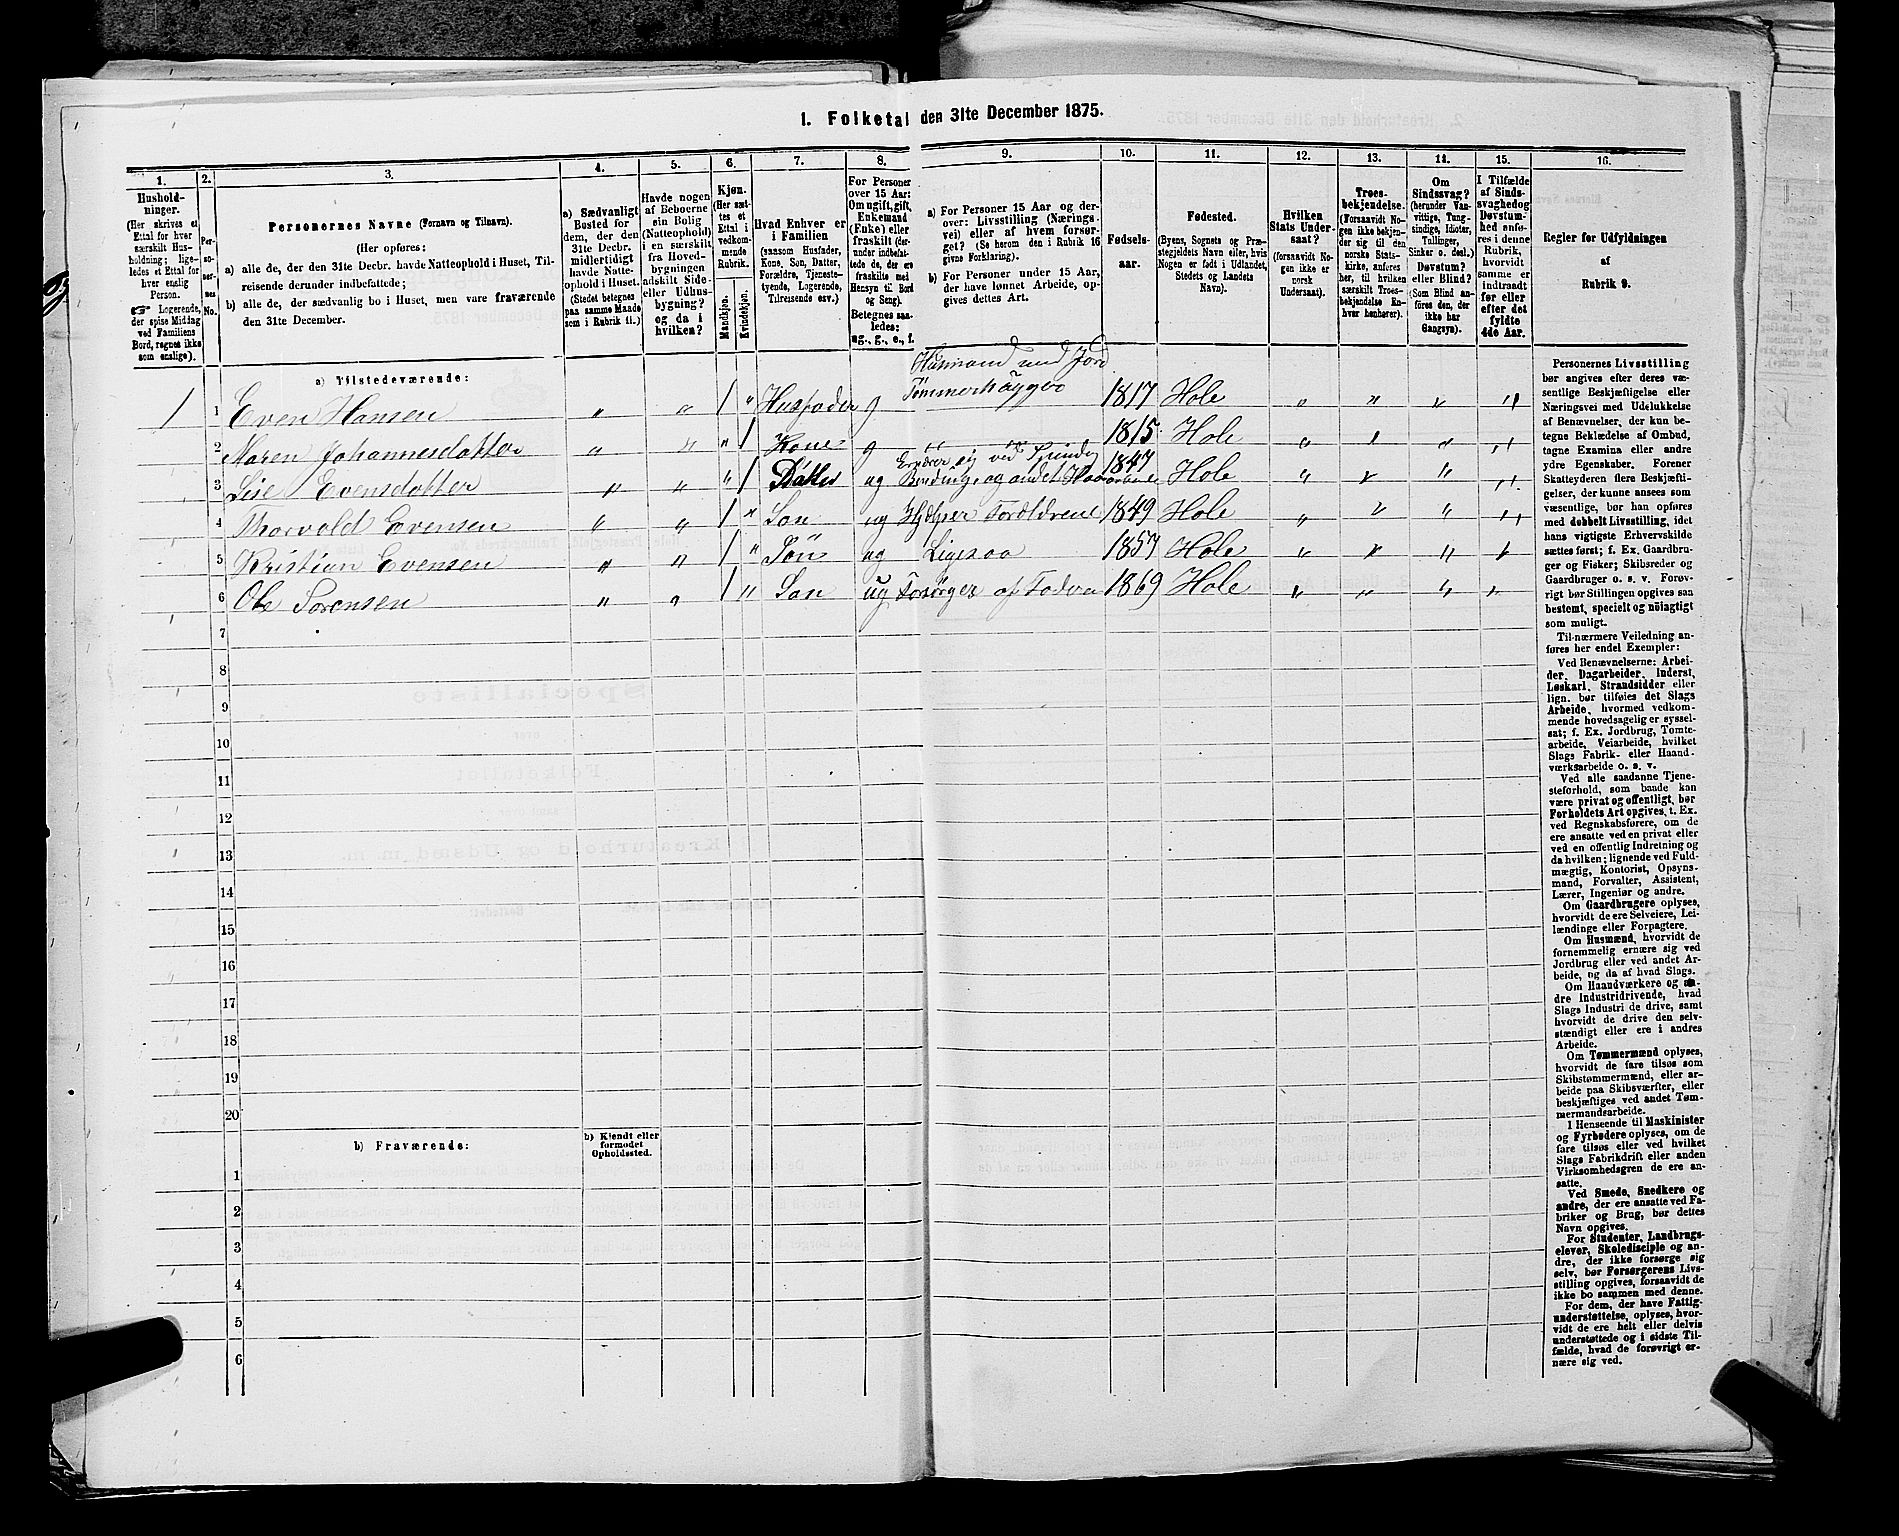 1. Folketal den 31te December 1875.
1. 2. 3. 4. 5. 6. 7. 8. 9. 10. 11. 12. 13. 14. 15. 16.
Husholdninger.
(Her skrives et
Ettal for hver
særskilt Husholdning;
ligeledes
et Ettal for
hver enslig
Person.
☞ Logerende,
der spise Middag
ved Familiens
Bord, regnes ikke
som enslige).
Personernes
No.
Personernes Navne (Fornavn og Tilnavn).
(Her opføres:
a) alle de, der den 31te Decbr. havde Natteophold i Huset, Tilreisende
derunder indbefattede;
b) alle de, der sædvanlig bo i Huset, men vare fraværende
den 31te December.
a) Sædvanligt
Bosted for
dem, der den
31te Decbr.
midlertidigt
havde Natteophold
i Huset.
(Stedet betegnes
paa samme Maade
som i Rubrik 11.)
Havde nogen
af Beboerne
sin Bolig
(Natteophold)
i en særskilt
fra Hovedbygningen
adskilt Side-
eller Udhusbygning?
og da i
hvilken?
Kjøn.
(Her sættes
et
Ettal i
vedkommende
Rubrik.
Mandkjøn.
Kvindekjøn.
Hvad Enhver er
i Familien
(saasom Husfader,
Kone, Søn, Datter,
Forældre, Tjenestetyende,
Logerende,
Tilreisende osv.)
For Personer
over 15 Aar:
Om ugift, gift,
Enkemand
(Enke) eller
fraskilt (derunder
indbefattede
de, der ere
fraskilte med
Hensyn til Bord
og Seng).
Betegnes saaledes:
ug., g., e., f.
a) For Personer 15 Aar og derover:
Livsstilling (Næringsvei)
eller af hvem forsørget?
(Se herom den i Rubrik 16
givne Forklaring).
b) For Personer under 15 Aar,
der have lønnet Arbeide, opgives
dettes Art.
Fødselsaar.
Fødested.
(Byens, Sognets og Præstegjeldets
Navn eller, hvis
Nogen er født i Udlandet,
Stedets og Landets
Navn).
Hvilken
Stats Undersaat?
(forsaavidt Nogen
ikke er
norsk
Undersaat).
Troesbekjendelse.
(Forsaavidt Nogen
ikke bekjender
sig til den
norske Statskirke,
anføres
her, til hvilken
særskilt Troesbekjendelse
Enhver
henhører).
Om
Sindssvag?
(herunder Vanvittige,
Tungsindige,
Idioter,
Tullinger,
Sinker o. desl.)
Døvstum?
eller Blind?
(Som Blind anføres
den, der
ikke har
Gangsyn).
I Tilfælde
af Sindssvaghed
og
Døvstumhed
anføres
i denne
Rubrik,
hvorvidt
samme er
indtraadt
før eller
efter det
fyldte
4de Aar.
Regler for Udfyldningen
af
Rubrik 9.
a) Tilstedeværende:
Husmand med Jord
1 1 Even Hansen " " 1 " Husfader g Tømmerhugger 1817 Hole " " " "
2 Maren Johannesdatter " " " 1 Kone g 1815 Hole " " " "
3 Lise Evensdatter " " " 1 Datter ug Ernærer sig ved
1847 Hole " " " "
4 Thorvald Evensen " " 1 " Søn ug Hjelper Forældrene 1849 Hole " " " "
5 Kristian Evensen " " 1 " Søn ug Ligesaa 1857 Hole " " " "
6 Ole Sørensen " " 1 " Søn ug Forsørges af 1869 Hole " " " "
7
8
9
10
11
12
13
14
15
16
17
18
19
20
b) Fraværende:
b) Kjendt eller
formodet
Opholdssted.
1
2
3
4
5
6
Personernes Livsstilling
bør angives efter deres væsentlige
Beskjæftigelse eller
Næringsvei med Udelukkelse
af Benævnelser, der kun betegne
Beklædelse af Ombud,
tagne Examina eller andre
ydre Egenskaber. Forener
Skatteyderen flere Beskjæftigelser,
der kunne ansees som
væsentlige, bør han opføres
med dobbelt Livsstilling, idet
hans vigtigste Erhvervskilde
sættes først; f. Ex. Gaardbruger
og Fisker; Skibsreder og
Gaardbruger o. s. v. Forøvrigt
bør Stillingen opgives saa
bestemt, specielt og nøiagtigt
som muligt.
Til nærmere Veiledning anføres
her endel Exempler:
Ved Benævnelserne: Arbeider,
Dagarbeider, Inderst,
Løskarl, Strandsidder eller
lign. bør tilføies det Slags
Arbeide, hvormed vedkommende
hovedsagelig er sysselsat;
f. Ex. Jordbrug, Tomtearbeide,
Veiarbeide, hvilket
Slags Fabrik- eller Haandværksarbeide
o. s. v.
Ved alle saadanne Tjenesteforhold,
som baade kan
være privat og offentligt, bør
Forholdets Art opgives, t. Ex.
ved Regnskabsførere, om de
ere ansatte ved en privat eller
ved en offentlig Indretning og
da hvilken; lignende ved Fuldmægtig,
Kontorist, Opsynsmand,
Forvalter, Assistent,
Lærer, Ingeniør og andre.
Om Gaardbrugere oplyses,
hvorvidt de ere Selveiere, Leilændinge
eller Forpagtere.
Om Husmænd, hvorvidt de
fornemmelig ernære sig ved
Jordbrug eller ved andet Arbeide,
og da af hvad Slags.
Om Haandværkere og andre
Industridrivende, hvad
Slags Industri de drive, samt
hvorvidt de drive den selvstændigt
eller ere i andres
Arbeide.
Om Tømmermænd oplyses,
hvorvidt de fare tilsøs som
Skibstømmermænd, eller arbeide
paa Skibsværfter, eller
beskjæftiges ved andet Tømmermandsarbeide.
I Henseende til Maskinister
og Fyrbødere oplyses, om de
fare tilsøs eller ved hvilket
Slags Fabrikdrift eller anden
Virksomhedsgren de ere ansatte.
Ved Smede, Snedkere og
andre, der ere ansatte ved Fabriker
og Brug, bør dettes
Navn opgives.
For Studenter, Landbrugselever,
Skoledisciple og andre,
der ikke forsørge sig
selv, bør Forsørgerens Livsstilling
opgives, forsaavidt de
ikke bo sammen med denne.
For dem, der have Fattigunderstøttelse,
oplyses, hvorvidt
de ere helt eller delvis
understøttede og i sidste Tilfælde,
hvad de forøvrigt ernære
sig ved.